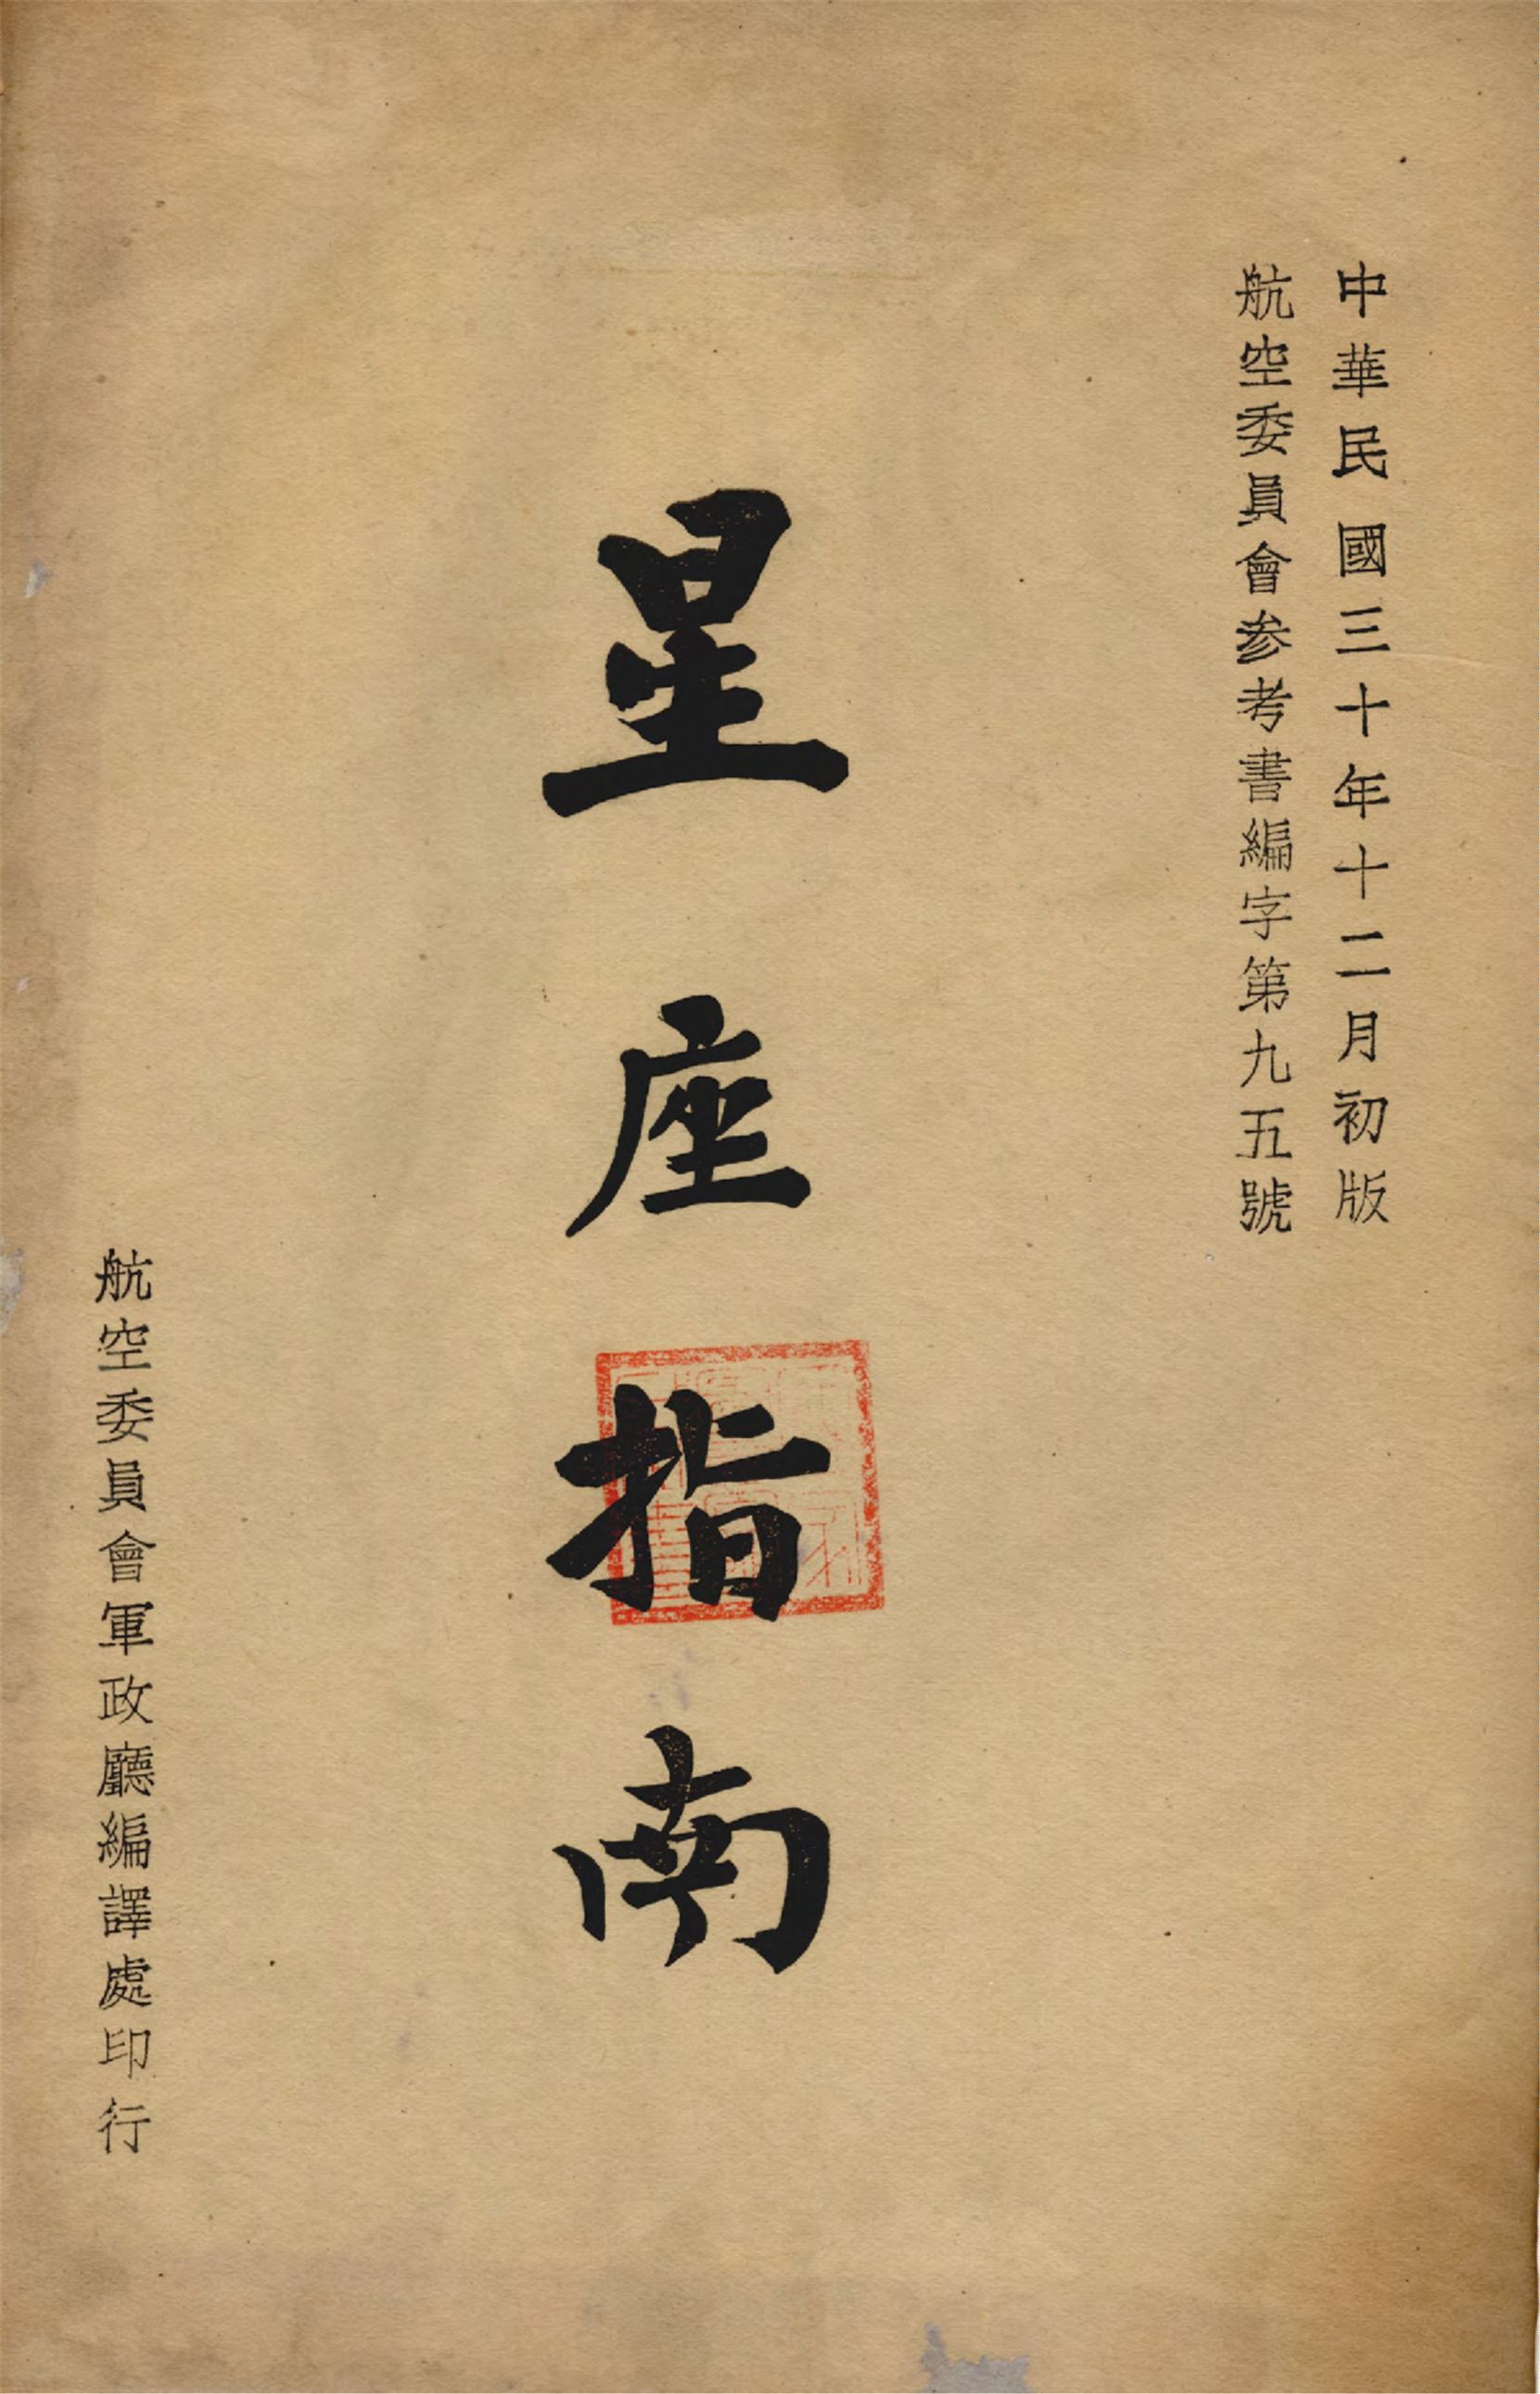 中華民國三十年十二月初版
航空委員會参考書編字第九五號
星座指南
航空委員會軍政廳編譯處印行